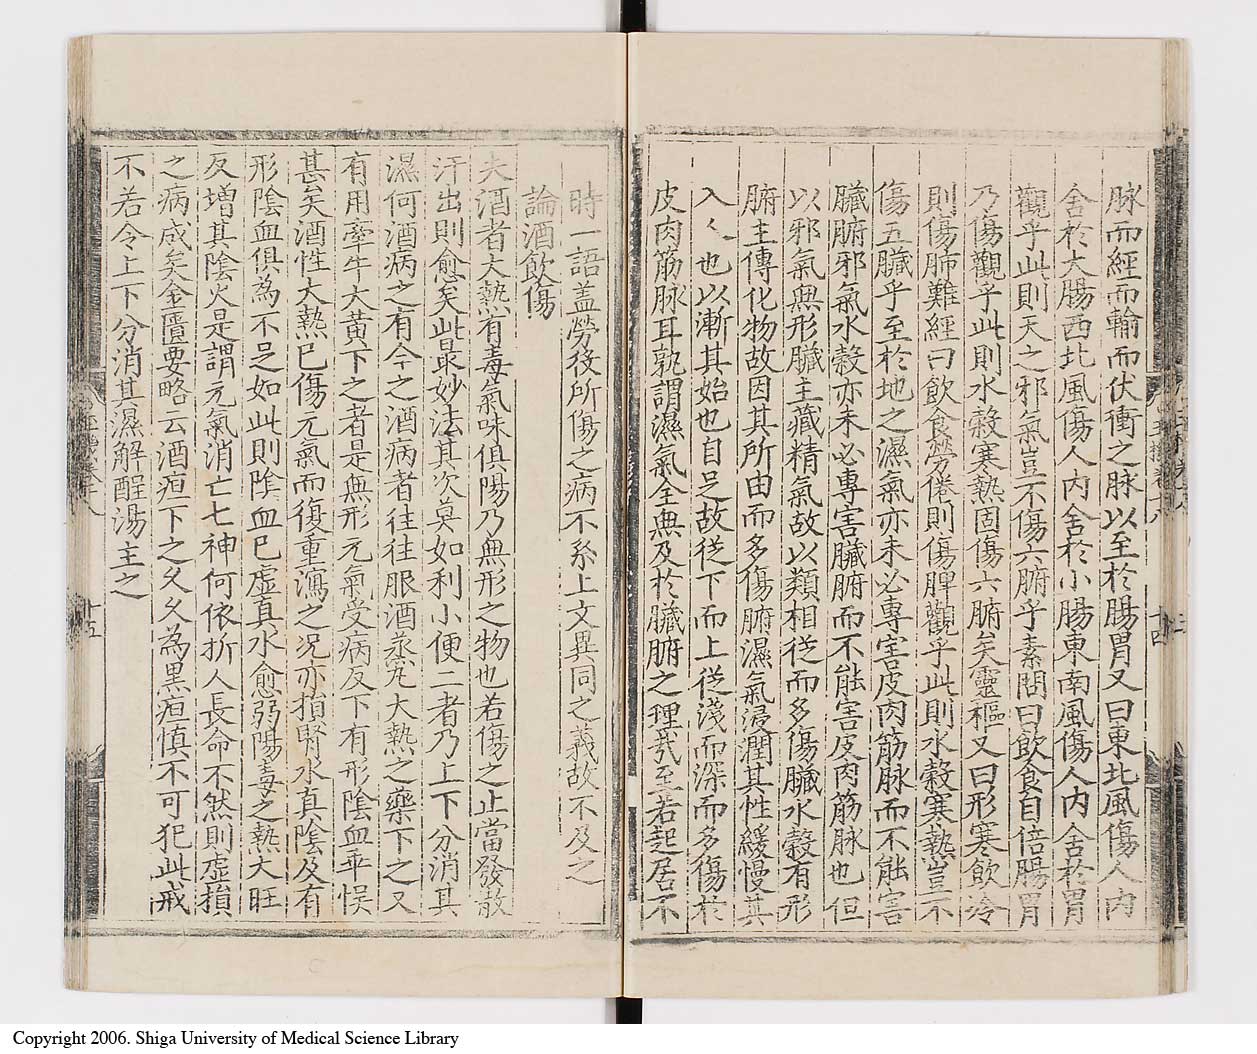 脉而經而輸而伏衝之脉以至於腸胃又曰東北風傷人內
舍於大腸西北風傷人內舍於小腸東南風傷人內舍於胃
觀乎此則天之邪氣豈不傷六腑乎素問曰飲食自倍腸胃
乃傷觀乎此則水穀寒熱固傷六腑矣靈樞又曰形寒飲冷
則傷肺難經曰飲食勞倦則傷脾觀乎此則水穀寒熱豈不
傷五臟乎至於地之濕氣亦未必專害皮肉筋脉而不能害
臟腑邪氣水穀亦未必專害臟腑而不能害皮肉筋脉也但
以邪氣無形臟主藏精氣故以類相從而多傷臟水穀有形
腑主傳化物故因其所由而多傷腑濕氣浸潤其性緩慢其
入人也以漸其始也自足故從下而上從淺而深而多傷於
皮肉筋脉耳孰謂濕氣全無及於臟腑之理哉至若起居不
時一語蓋勞役所傷之病不系上文異同之義故不及之
論酒飲傷
夫酒者大熱有毒氣味俱陽乃無形之物也若傷之止當發散
汗出則愈矣此最妙法其次莫如利小便二者乃上下分消其
濕何酒病之有今之酒病者往往服酒䒱丸大熱之藥下之又
有用牽牛大黃下之者是無形元氣受病反下有形陰血乖悮
甚矣酒性大熱已傷元氣而復重瀉之况亦損腎水真陰及有
形陰血俱為不足如此則陰血已虛真水愈弱陽毒之熱大旺
反增其陰火是謂元氣消亡七神何依折人長命不然則虛損
之病成矣金匱要略云酒疸下之久久為黑疸慎不可犯此戒
不若令上下分消其濕解酲湯主之
十四
十五
Copyright 2006. Shiga University of Medical Science Library